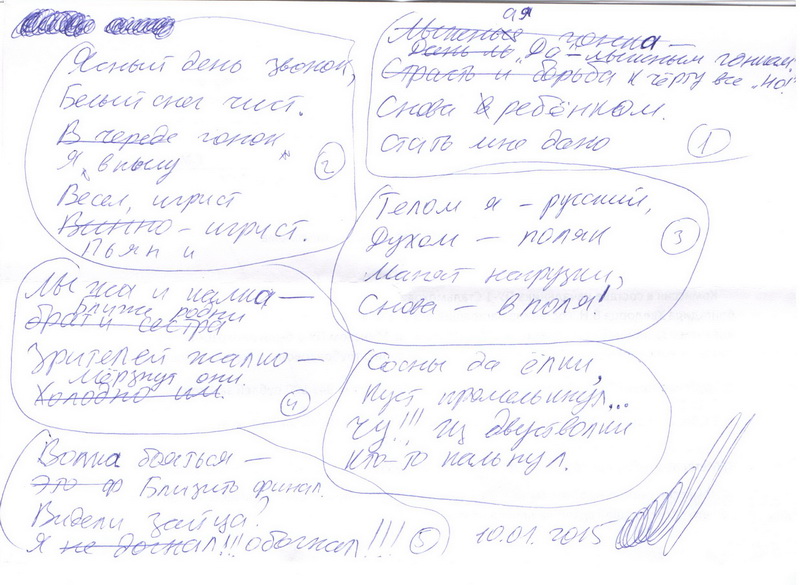 Ясный день звонок,
Белый снег чист.
В череде гонок
Я, в пылу
Весел, игрист
Винно - игрист.
Пьян и
2
ая
Лыжная гонка —
„Да"-лыжным гонкам,
Страсть и борьба к чёрту все „но!"
Снова ребёнком.
Стать мне дано
1
Телом я - русский,
Духом — поляк
Манят нагрузки,
Снова — в поля!
3
Лыжа и палка —
Ближе родни
брат и сестра
Зрителей жалко —
Мёрзнут они.
Холодно им.
4
Сосны да ёлки,
Куст промелькнул...
Чу!!! Из двустволки
Кто-то пальнул.
Волка бояться —
Это ф Близить финал.
Видели зайца?
Я не догнал!!! обогнал!!!
5
10.01.2015